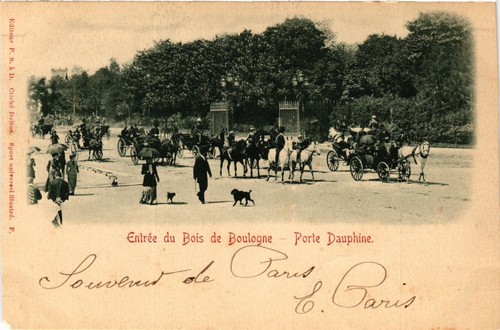 Editeur P. S. à D. Cliché Delton. Sport universel illustré. P.
Entrée du Bois de Boulogne – Porte Dauphine.
Souvenir de Paris
E. Paris